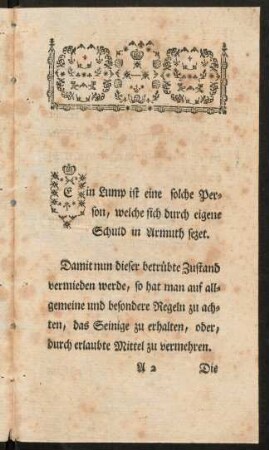 Ein Lump ist eine solche Per-
son, welche sich durch eigene
Schuld in Armuth sezet.
Damit nun dieser betrübte Zustand
vermieden werde, so hat man auf all-
gemeine und besondere Regeln zu ach-
ten, das Seinige zu erhalten, oder,
durch erlaubte Mittel zu vermehren.
A 2 Die